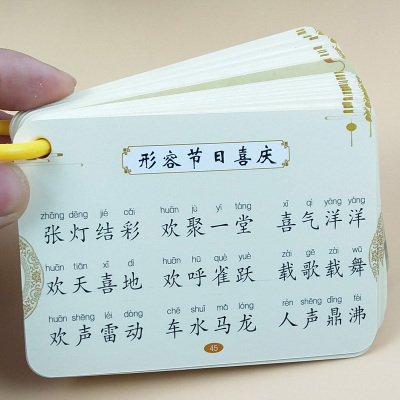 形容节日喜庆
zhāng dēng jié cǎi huān jù yī táng xǐ qì yáng yáng
张灯结彩 欢聚一堂 喜气洋洋
huān tiān xǐ dì huān hū què yuè zài gē zài wǔ
欢天喜地 欢呼雀跃 载歌载舞
huān shēng léi dòng chē shuǐ mǎ lóng rén shēng dǐng fèi
欢声雷动 车水马龙 人声鼎沸
45